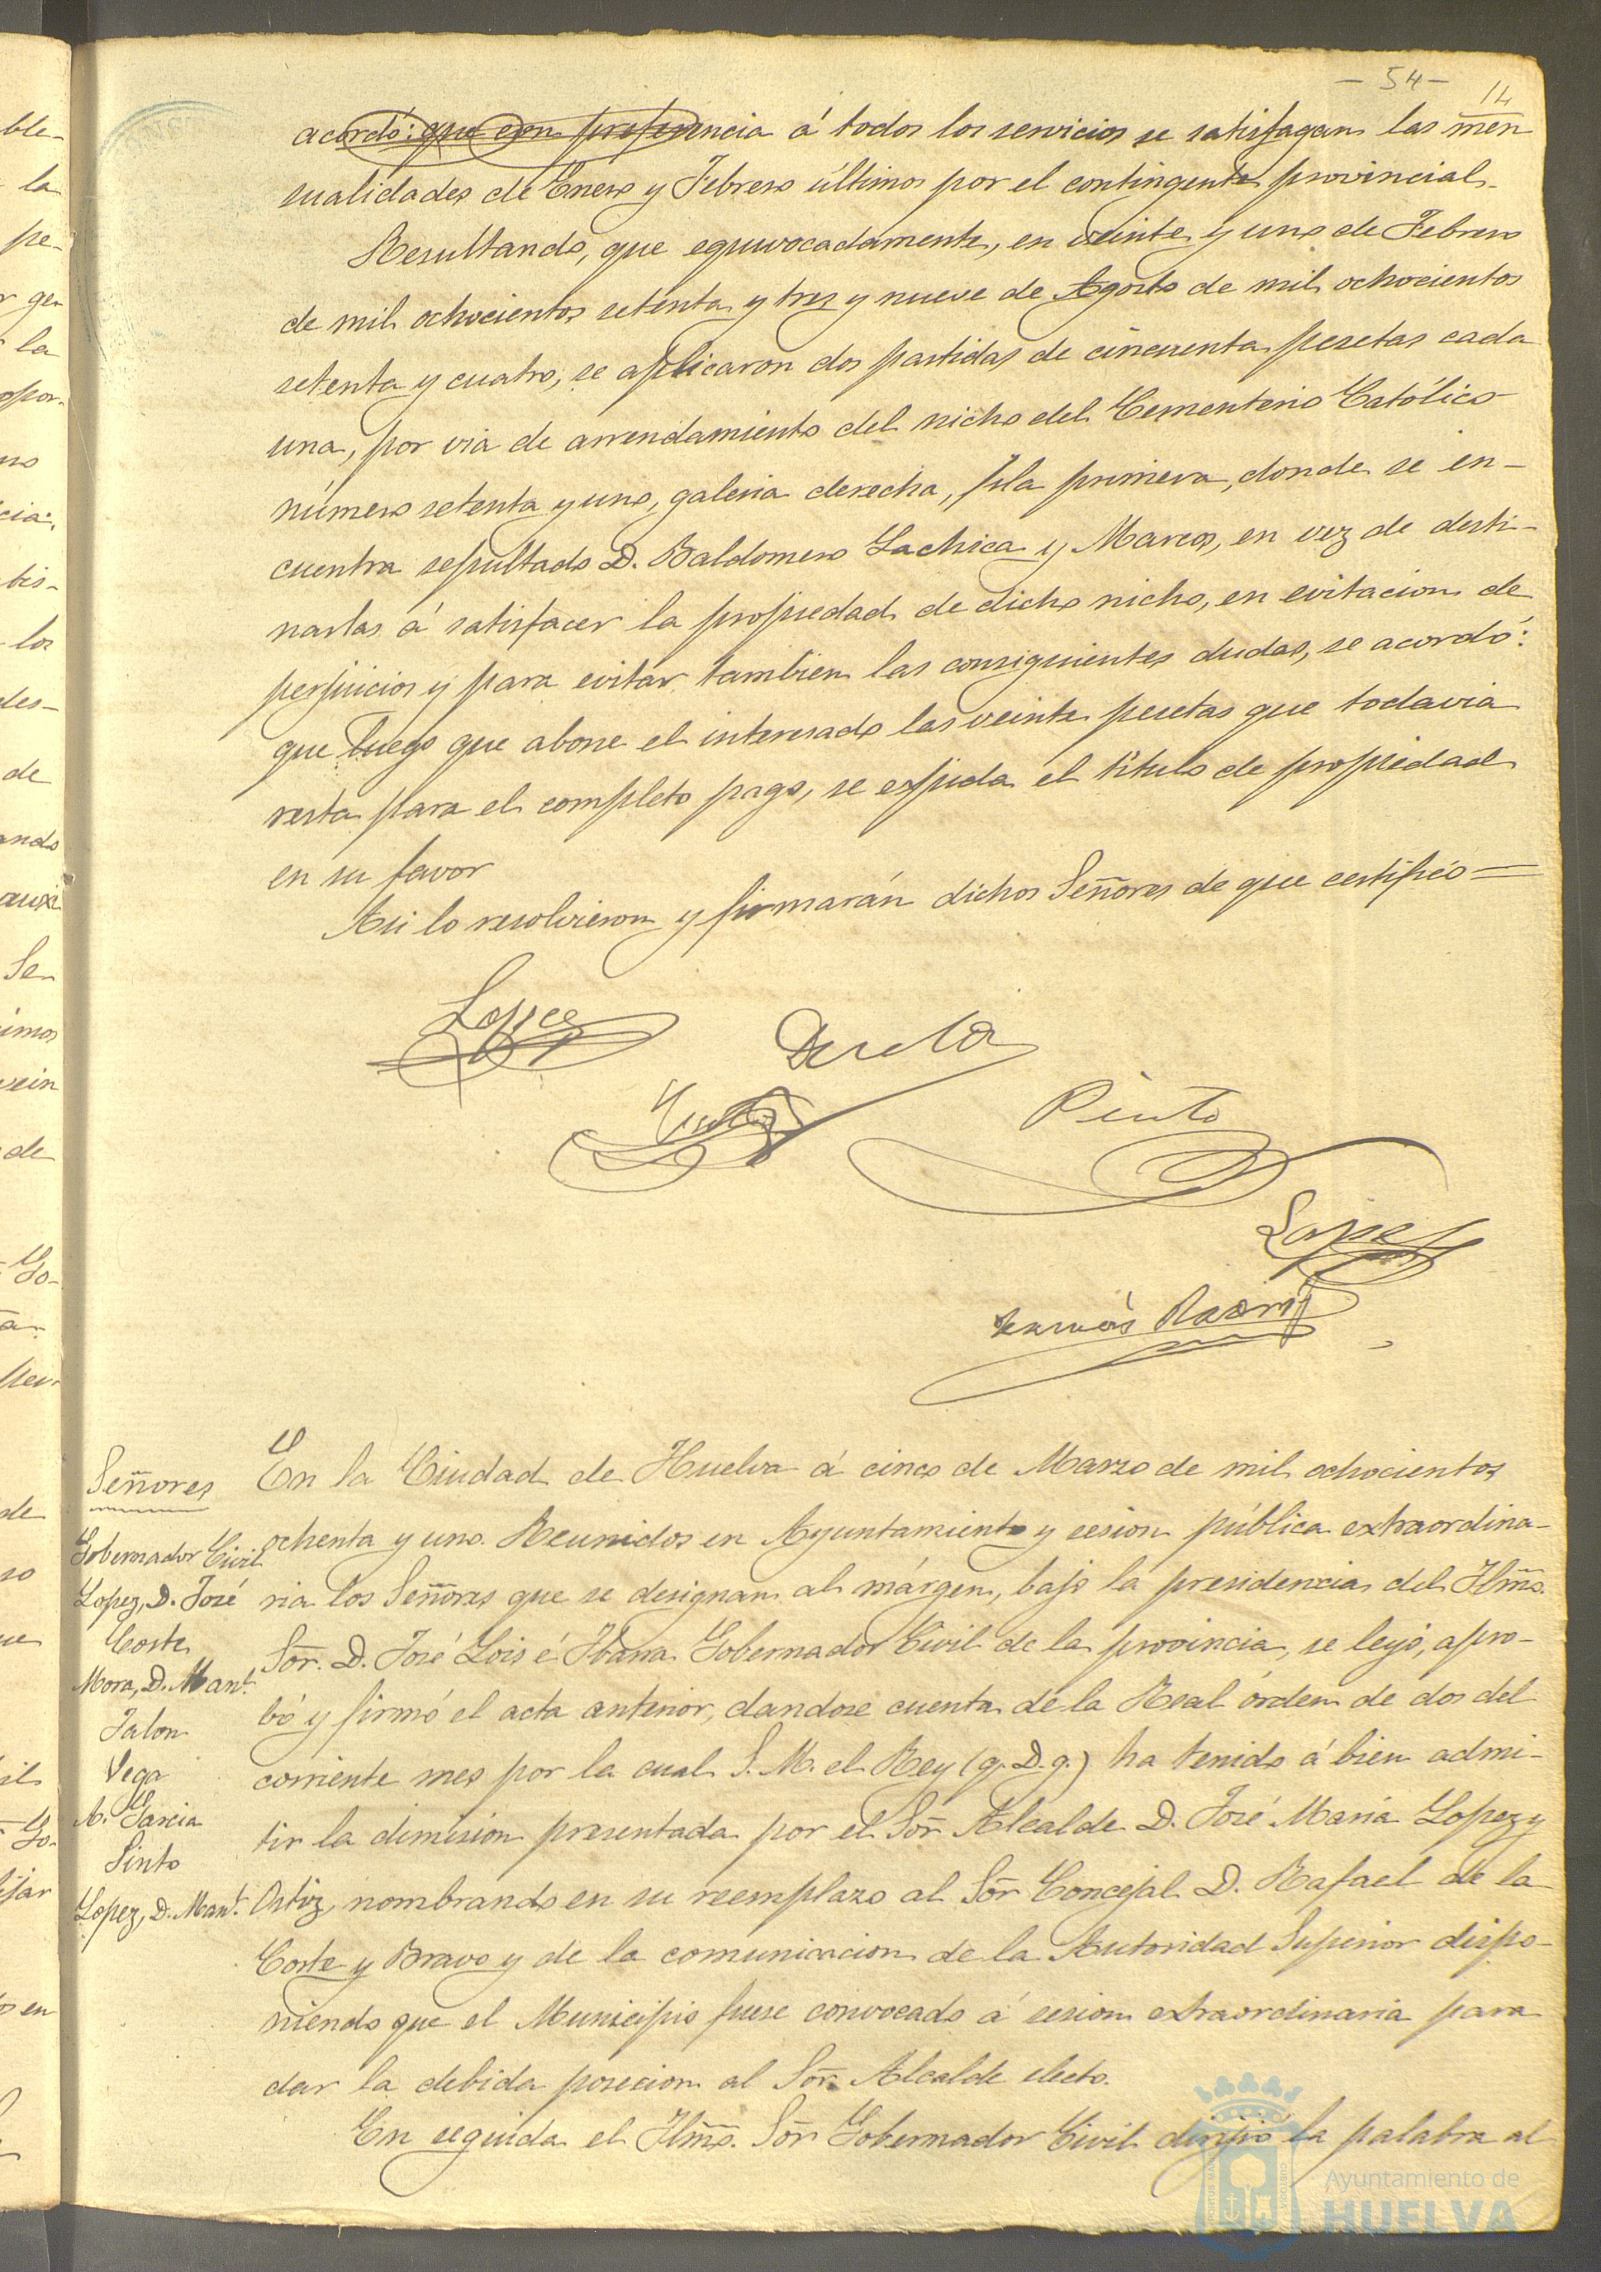 - 54 -
14
acordó: que con preferencia á todos los servicios se satisfagan las men
sualidades de Enero y Febrero últimos por el contingente provincial.
Resultando, que equivocadamente, en veinte y uno de Febrero
de mil ochocientos setenta y tres y nueve de Agosto de mil ochocientos
setenta y cuatro, se aplicaron dos partidas de cincuenta pesetas cada
una, por via de arrendamiento del nicho del Cementerio Católico
número setenta y uno, galeria derecha, fila primera, donde se en-
cuentra sepultado D. Baldomero Lachica y Marcos, en vez de desti-
narlas á satisfacer la propiedad de dicho nicho, en evitacion de
perjuicios y para evitar tambien las consiguientes dudas, se acordó:
que luego que abone el interesado las veinte pesetas que todavia
resta para el completo pago, se espida el título de propiedad
en su favor
Asi lo resolvieron y firmarán dichos Señores de que certifico=
Lopez
Pinto
Lopez
Señores
Gobernador Civil
Lopez, D. José
Coste
Mora, D. Manl.
Jalon
Vega
A. Garcia
Pinto
Lopez, D. Manl.
En la Ciudad de Huelva á cinco de Marzo de mil ochocientos
ochenta y uno. Reunidos en Ayuntamiento y sesion pública extraordina-
ria los Señores que se designan al márgen, bajo la presidencia del Ilmo.
Sor. D. José Lois é Ibarra Gobernador Civil de la provincia, se leyó, apro-
bó y firmó el acta anterior, dandose cuenta de la Real órden de dos del
corriente mes por la cual S. M. el Rey (q. D. g.) ha tenido á bien admi-
tir la dimision presentada por el Sor Alcalde D. José Maria Lopez y
Ortiz, nombrando en su reemplazo al Sor Concejal D. Rafael de la
Corte y Bravo y de la comunicacion de la Autoridad Superior dispo-
niendo que el Municipio fuese convocado á sesion extraordinaria para
dar la debida posecion al Sor. Alcalde electo.
En seguida el Ilmo. Sor Gobernador Civil dirijió la palabra al
Ayuntamiento de
HUELVA